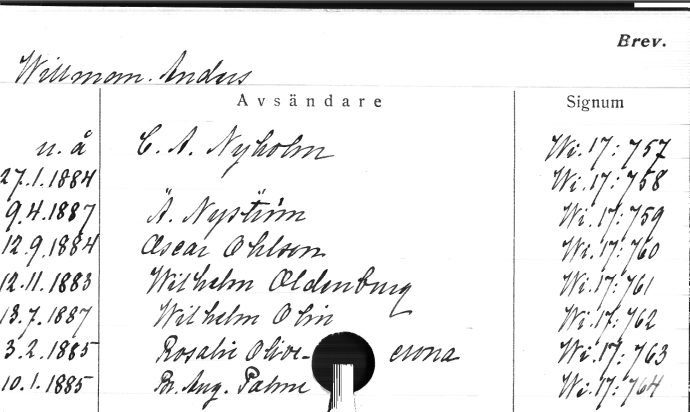 Brev.
Willman. Anders
Avsändare Signum
u. å C. A. Nyholm Wi. 17: 757
27.1.1884 Wi. 17: 758
9.4.1887 Ä. Nyström Wi. 17: 759
12.9.1884 Oscar Ohlson Wi. 17: 760
12.11.1883 Wilhelm Oldenburg Wi. 17: 761
13.7.1887 Wilhelm Olin Wi. 17: 762
3.2.1885 Rosalie Olive- crona Wi. 17: 763
10.1.1885 Aug. Palme Wi. 17: 764